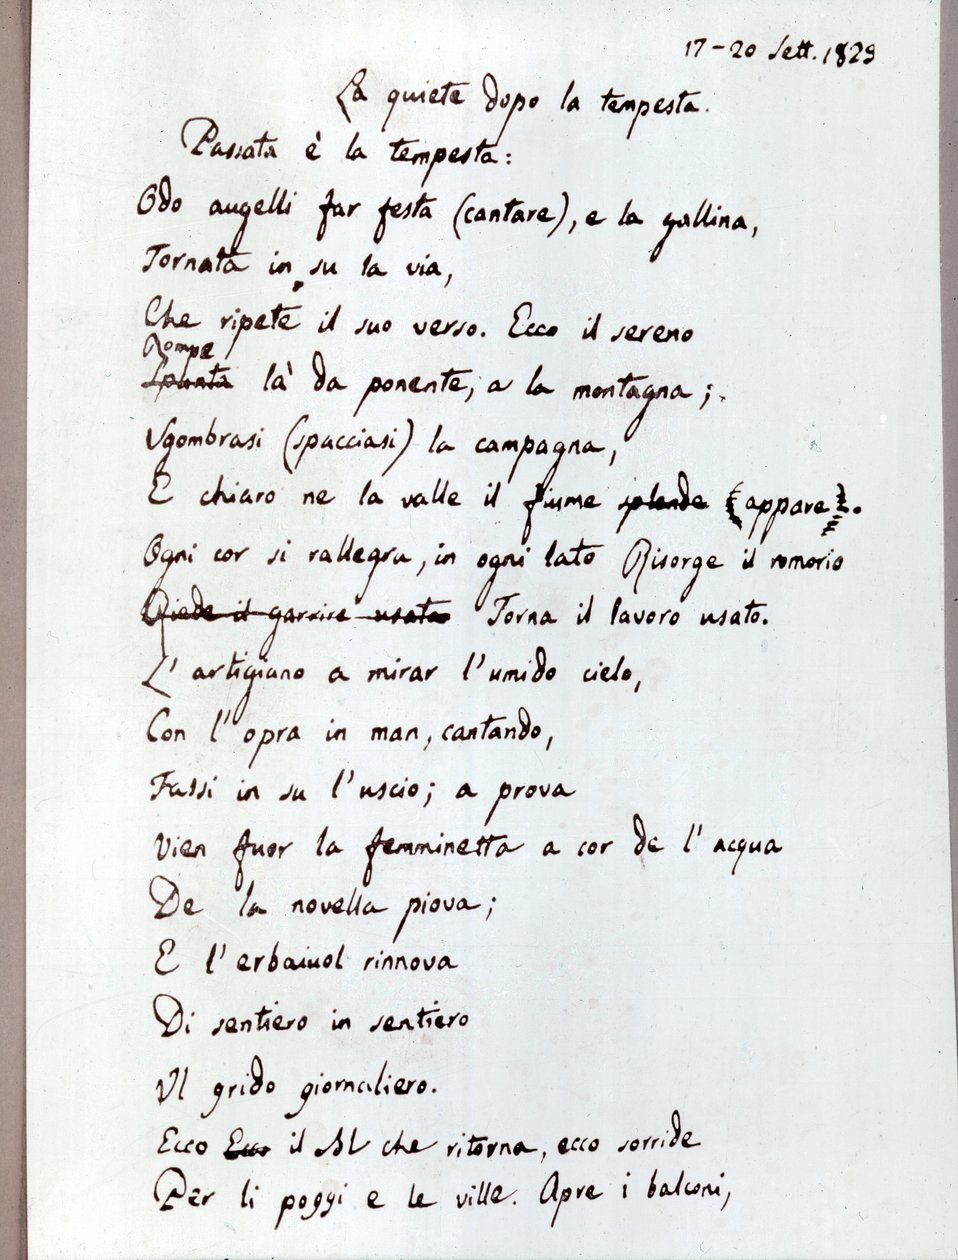 17-20 Sett. 1829
La quiete dopo la tempesta.
Passata è la tempesta:
Odo augelli far festa (cantare), e la gallina,
Tornata in su la via,
Che ripete il suo verso. Ecco il sereno
Rompe
Spunta là da ponente, a la montagna;
Sgombrasi (spacciasi) la campagna,
E chiaro ne la valle il fiume splende (appare).
Ogni cor si rallegra, in ogni lato Risorge il romorio
Riede il garrire usato Torna il lavoro usato.
L' artigiano a mirar l'umido cielo,
Con l'opra in man, cantando,
Fassi in su l'uscio; a prova
Vien fuor la femminetta a cor de l' acqua
De la novella piova;
E l'erbaiuol rinnova
Di sentiero in sentiero
Il grido giornaliero.
Ecco Ecco il Sol che ritorna, ecco sorride
Per li poggi e le ville. Apre i balconi,